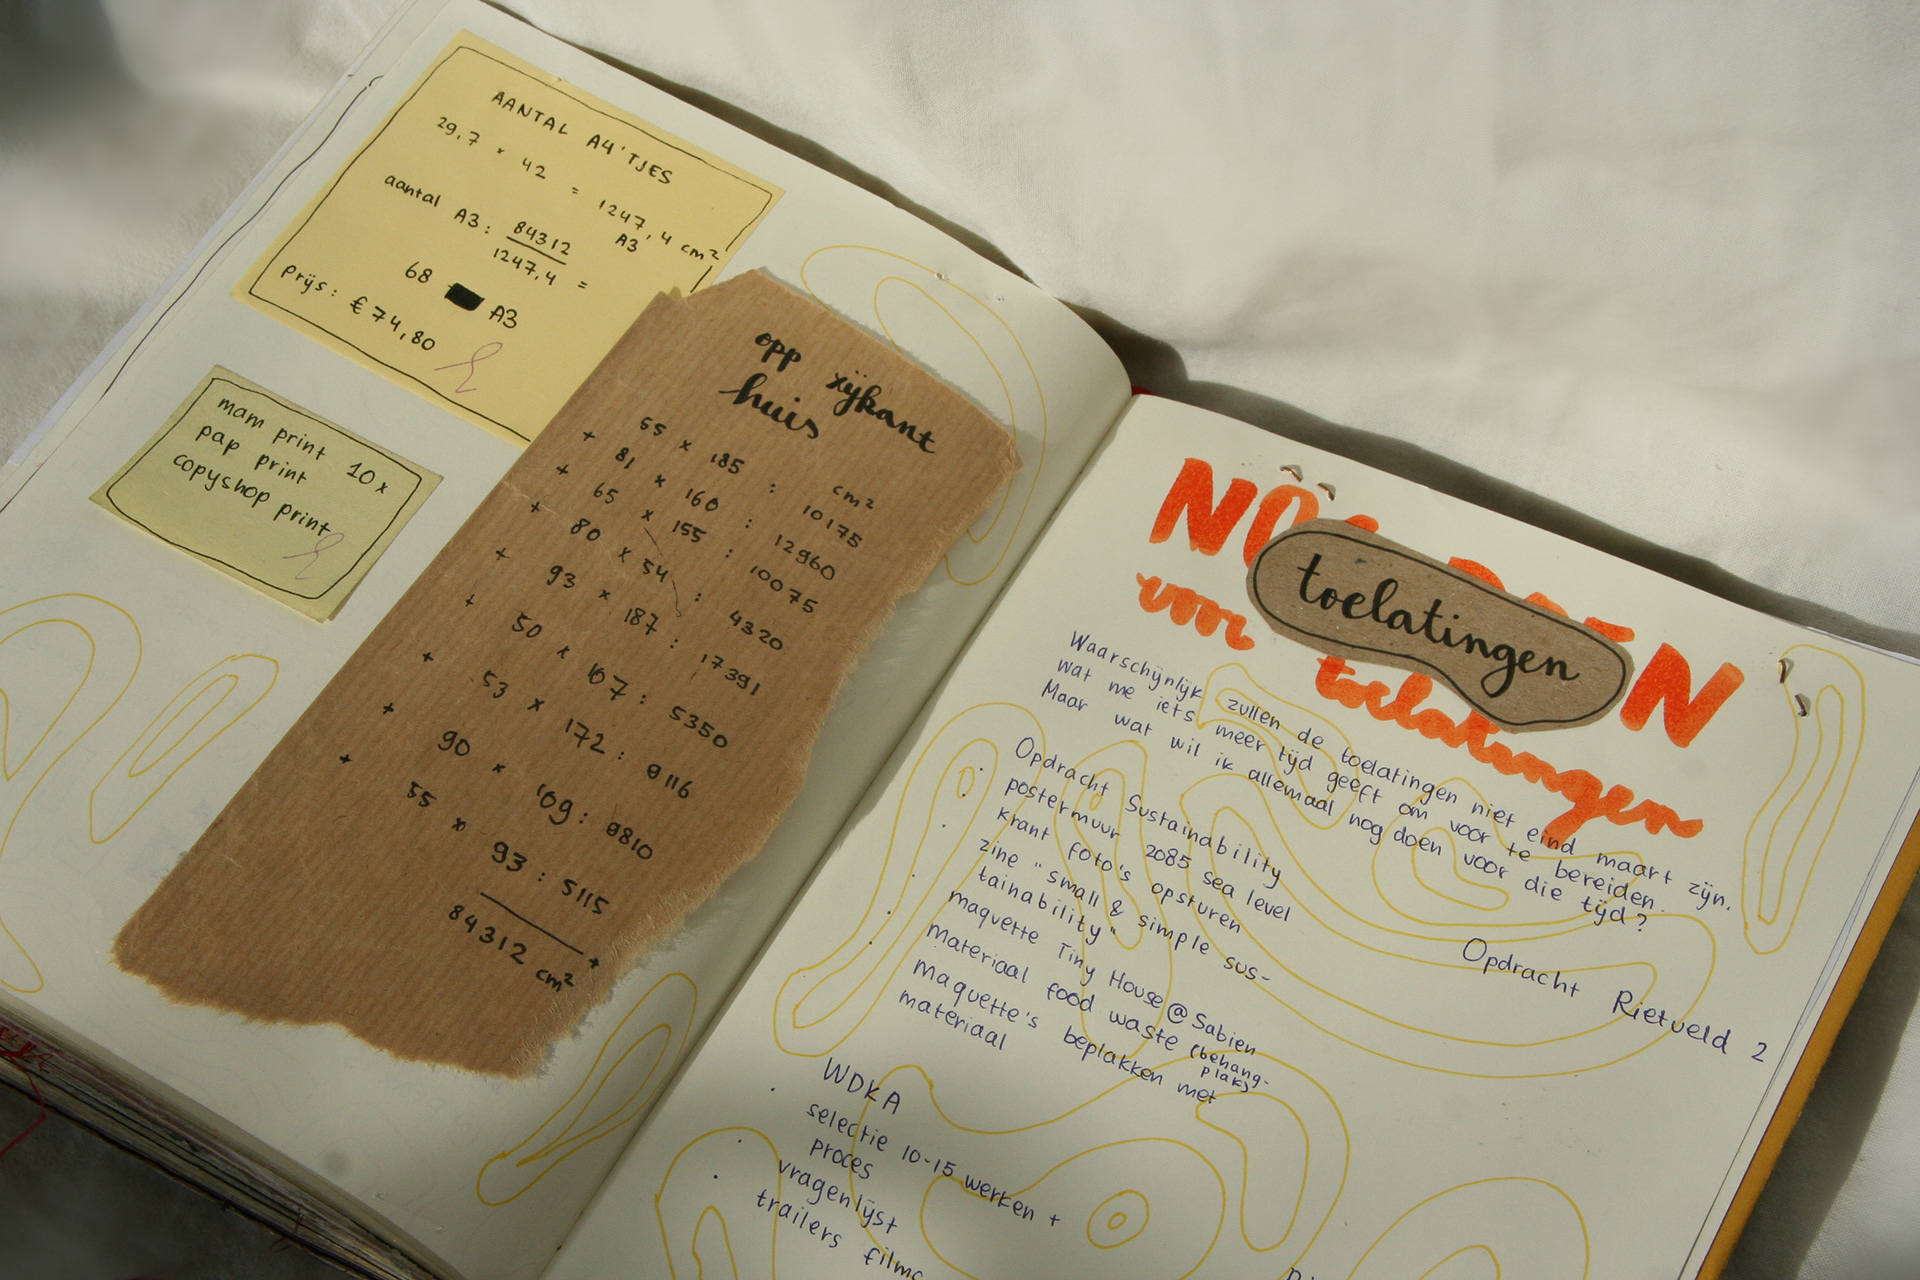 AANTAL A4'TJES
29,7 x 42 = 1247,4 cm²
A3
aantal A3: 84312
1247,4 =
68 A3
prijs: € 74,80
mam print 10x
pap print
copyshop print
opp zijkant
huis
cm²
55 x 185 : 10175
+ 81 x 160 : 12960
+ 65 x 155 : 10075
+ 80 x 54 : 4320
+ 93 x 187 : 17391
+ 50 x 107 : 5350
+ 53 x 172 : 9116
+ 90 x 109 : 9810
+ 55 x 93 : 5115
+
84312 cm²
voor toelatingen
toelatingen
Waarschijnlijk zullen de toelatingen niet eind maart zijn.
wat me iets meer tijd geeft om voor te bereiden.
Maar wat wil ik allemaal nog doen voor die tijd?
Opdracht Sustainability
· postermuur 2085 sea level
· krant foto's opsturen
· zine "small & simple sus-
tainability"
· maquette Tiny House @Sabien
· materiaal food waste (behang-
plak)
· maquette's beplakken met
materiaal
Opdracht Rietveld 2
WDKA
· selectie 10-15 werken +
proces
· vragenlijst
· trailers